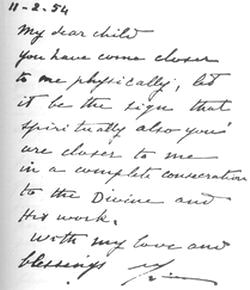 11-2-54
My dear child
you have come closer
to me physically; let
it be the sign that
spiritually also you
are closer to me
in a complete consecration
to the Divine and
His work.
With my love and
blessings